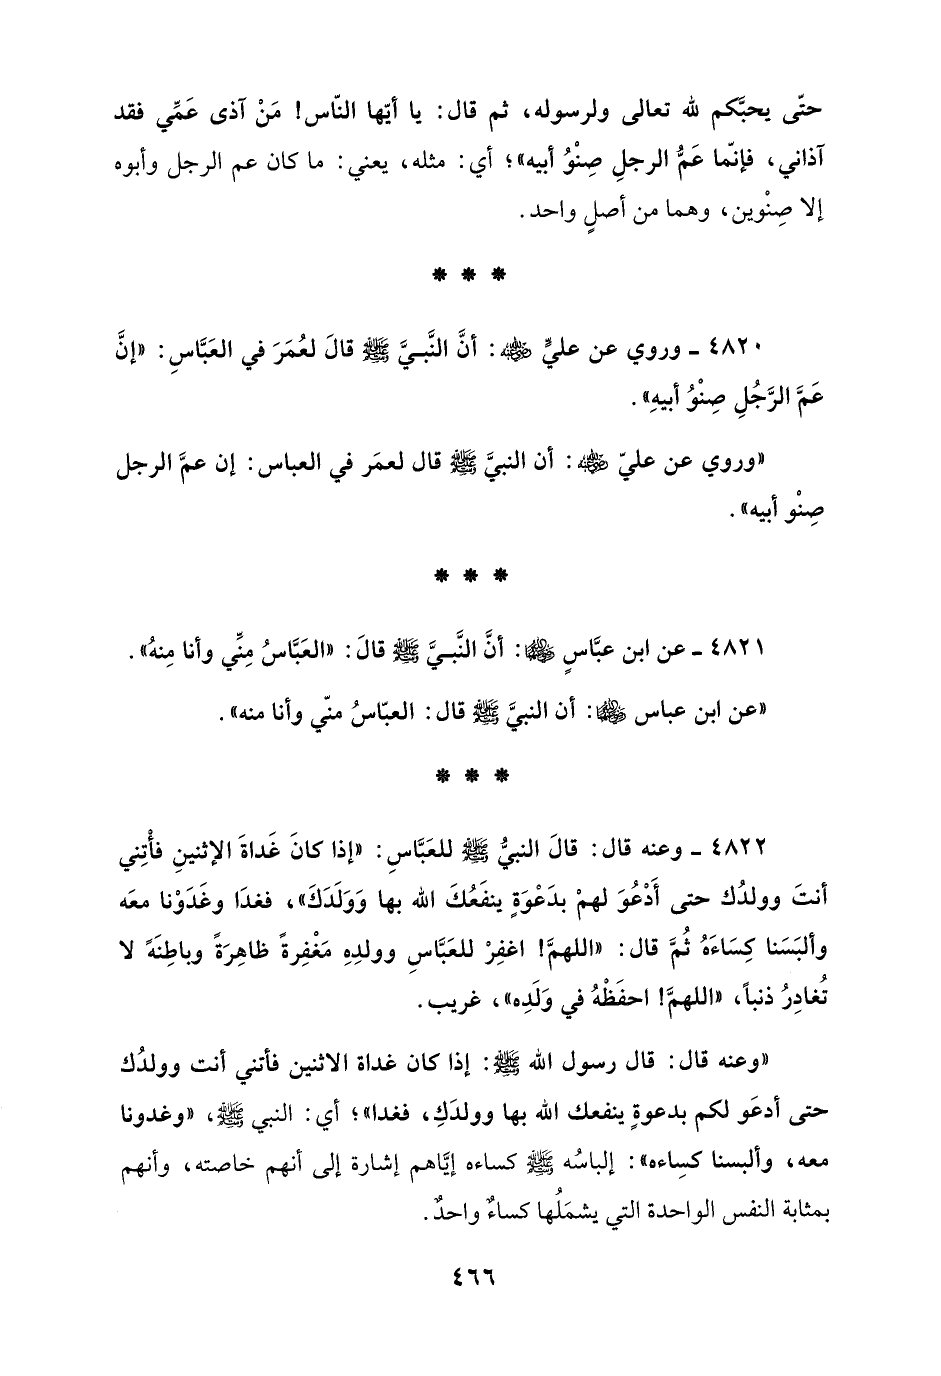 حتّى يحبَّكم لله تعالى ولرسوله، ثم قال: يا أيّها النّاس! مَنْ آذى عَمِّي فقد
آذاني، فإنّما عَمُّ الرجلِ صِنْوُ أبيه»؛ أي: مثله، يعني: ما كان عم الرجل وأبوه
إلا صِنْوين، وهما من أصلٍ واحد.
* * *
٤٨٢٠ ـ وروي عن عليٍّ ﵁: أنَّ النَّبيَّ ﷺ قالَ لعُمَرَ في العَبَّاسِ: «إنَّ
عَمَّ الرَّجُلِ صِنْوُ أبيهِ».
«وروي عن عليّ ﵁: أن النبيَّ ﷺ قال لعمَر في العباس: إن عمَّ الرجل
صِنْو أبيه».
* * *
٤٨٢١ ـ عن ابن عبَّاسٍ ﵄: أنَّ النَّبيَّ ﷺ قالَ: «العَبَّاسُ مِنِّي وأنا مِنهُ».
«عن ابن عباس ﵄: أن النبيَّ ﷺ قال: العبّاسُ منّي وأنا منه».
* * *
٤٨٢٢ ـ وعنه قال: قالَ النبيُّ ﷺ للعَبَّاسِ: «إذا كانَ غَداةَ الإثنينِ فأْتِني
أنتَ وولدُك حتى أَدْعُوَ لهمْ بدَعْوَةٍ ينفَعُكَ الله بها وَوَلَدَكَ»، فغدَا وغَدَوْنا معَه
وألبَسَنا كِسَاءَهُ ثُمَّ قال: «اللهمَّ! اغفِرْ للعَبَّاسِ وولدِهِ مَغْفِرةً ظاهِرَةً وباطِنَةً لا
تُغادِرُ ذنباً، «اللهمَّ! احفَظْهُ في وَلَدِه»، غريب.
«وعنه قال: قال رسول الله ﷺ: إذا كان غداة الاثنين فأتني أنت وولدُك
حتى أدعَو لكم بدعوةٍ ينفعك الله بها وولدَكِ، فغدا»؛ أي: النبي ﷺ، «وغدونا
معه، وألبسنا كسِاءه»: إلباسُه ﷺ كساءه إيَّاهم إشارة إلى أنهم خاصته، وأنهم
بمثابة النفس الواحدة التي يشمَلُها كساءٌ واحدٌ.
٤٦٦